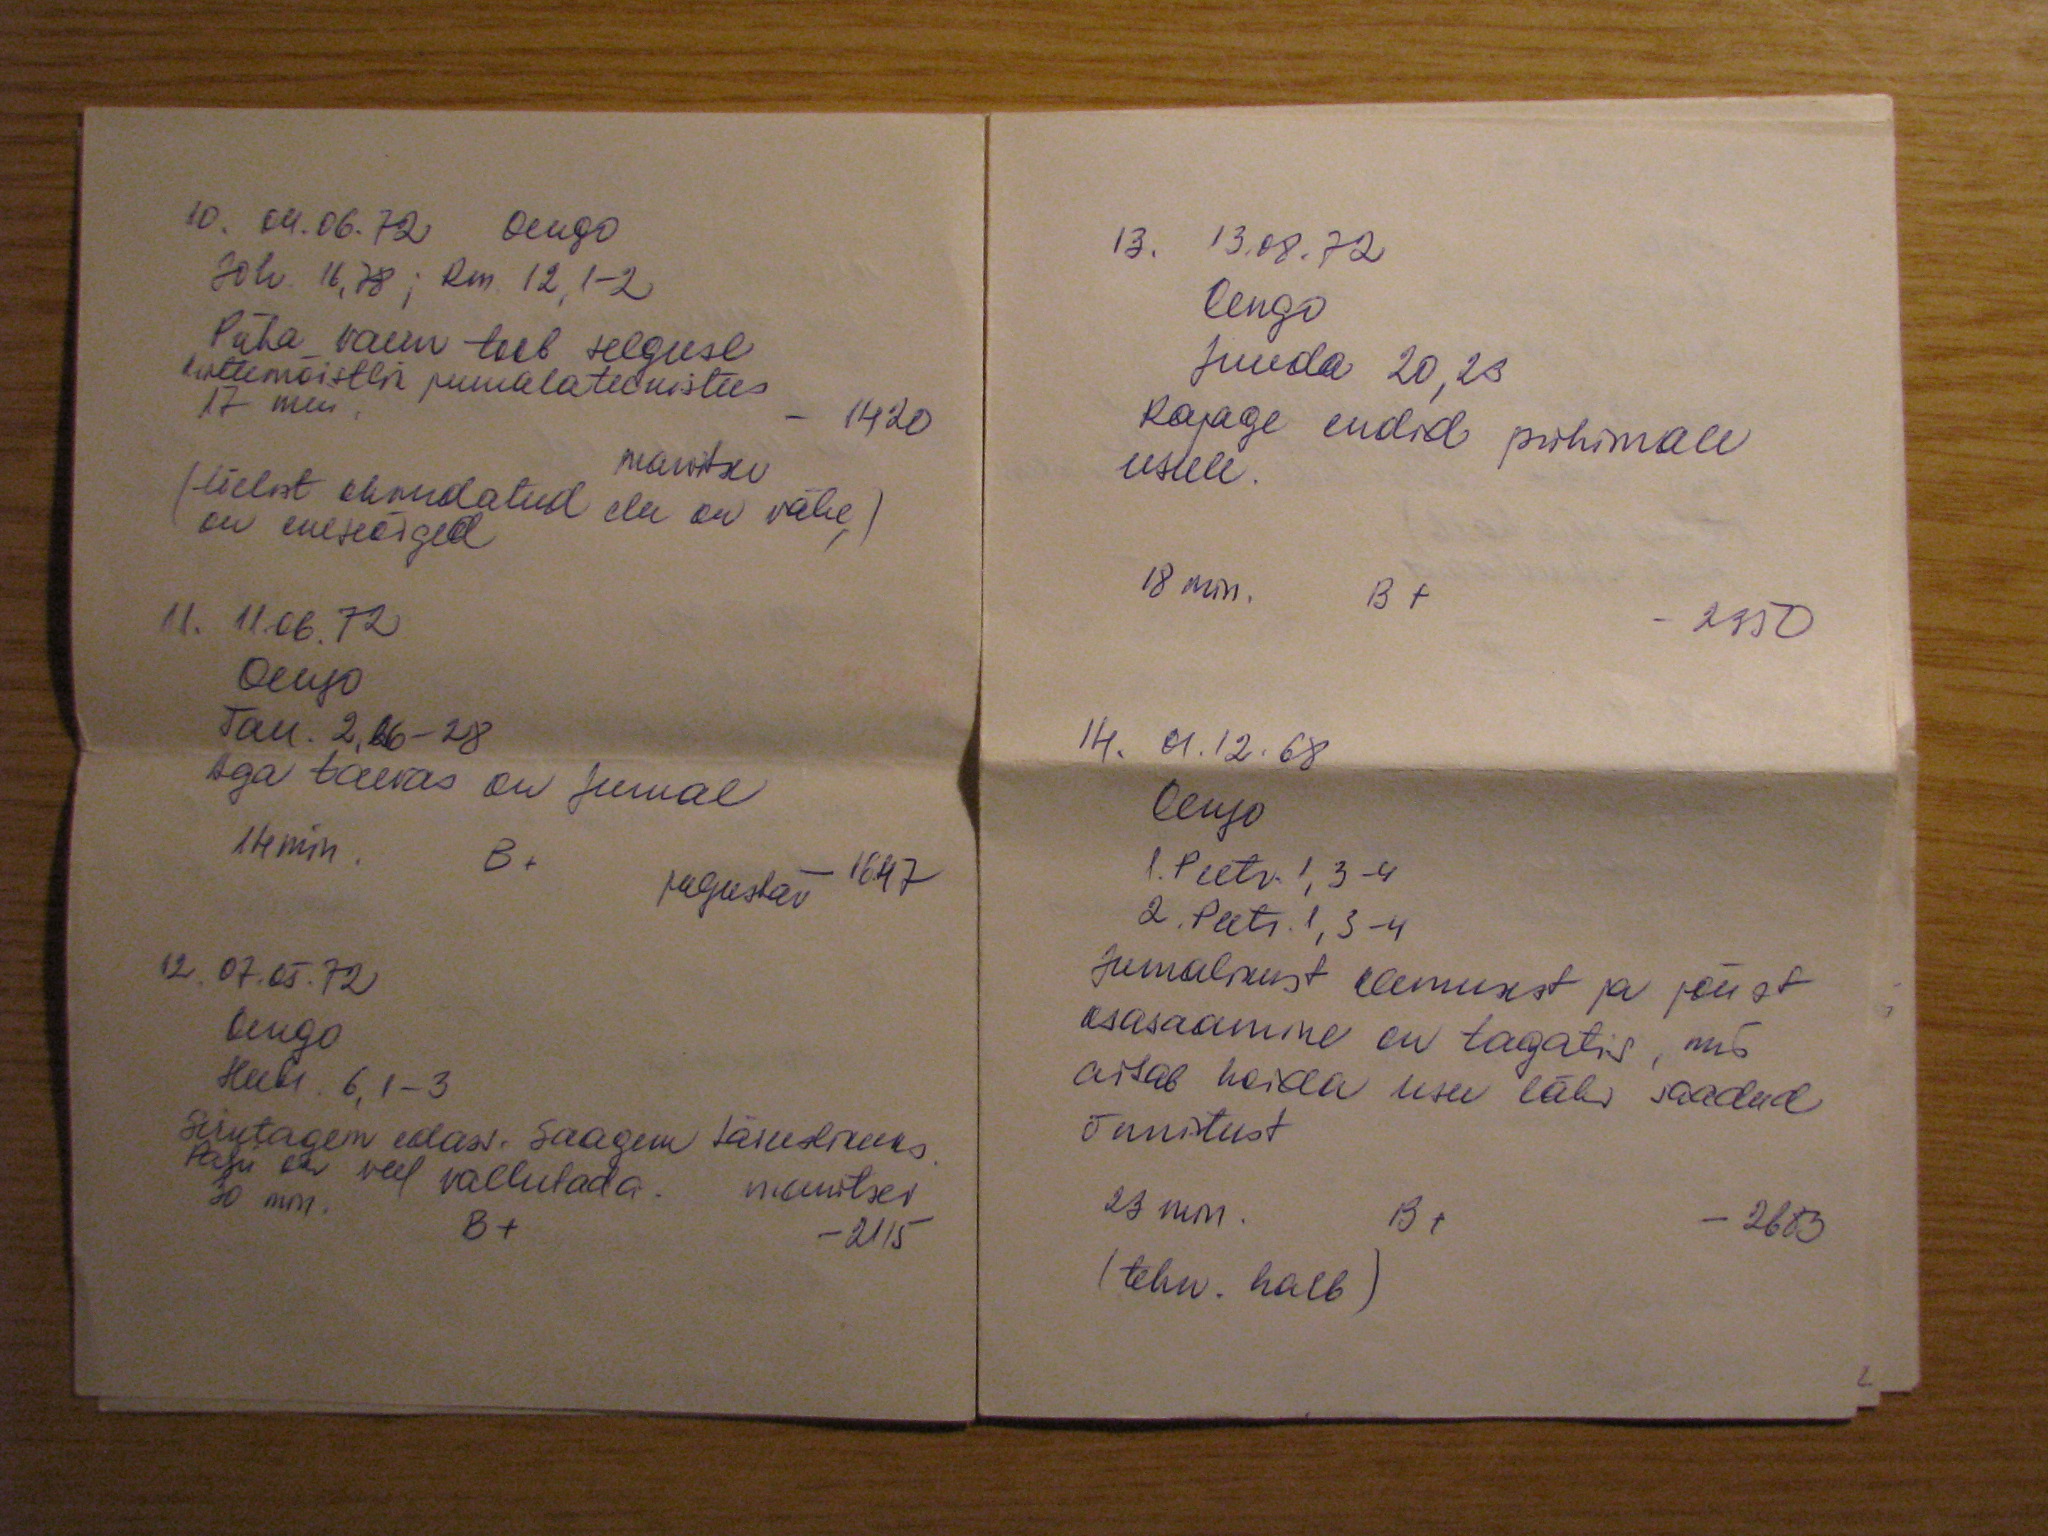 10. 04.06.72 Oengo
Joh. 16,78; Rm. 12, 1-2
Püha vaim toob selguse
mõistlik jumalateenistus
17 min.
- 1420
manitsev
(üelst ehmudatud elu on vähe,)
on eneseõiged
11. 11.06.72
Oengo
Tan. 2, 26-28
Aga taevas on Jumal
14 min. B+
julgustav - 1647
12. 07.05.72
Oengo
Heebr. 6, 1-3
Siirutagem edasi. Saagem täiuslikuks.
Palju on veel vallutada. manitsev
30 min.
B+ - 2115
13. 13.08.72
Oengo
Juuda 20,23
Rajage endid pühimale
usule.
18 min. B+
- 2350
14. 01.12.68
Oengo
1. Peetr. 1, 3-4
2. Peetr. 1, 3-4
Jumalikust olemusest ja jõust
osasaamine on tagatis, mis
aitab hoida usu läbi saadud
õnnistust
23 min. B+ - 2683
(tehn. halb)
2